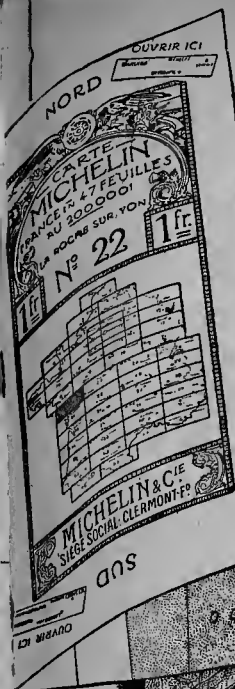 OUVRIR ICI
NORD
CARTE
MICHELIN
FRANCE EN 47 FEUILLES
AU 200000!
LA ROCHE SUR YON
1fr. Nº 22 1fr.
MICHELIN & CIE
SIÈGE SOCIAL: CLERMONT-FD.
SUD
OUVRIR ICI